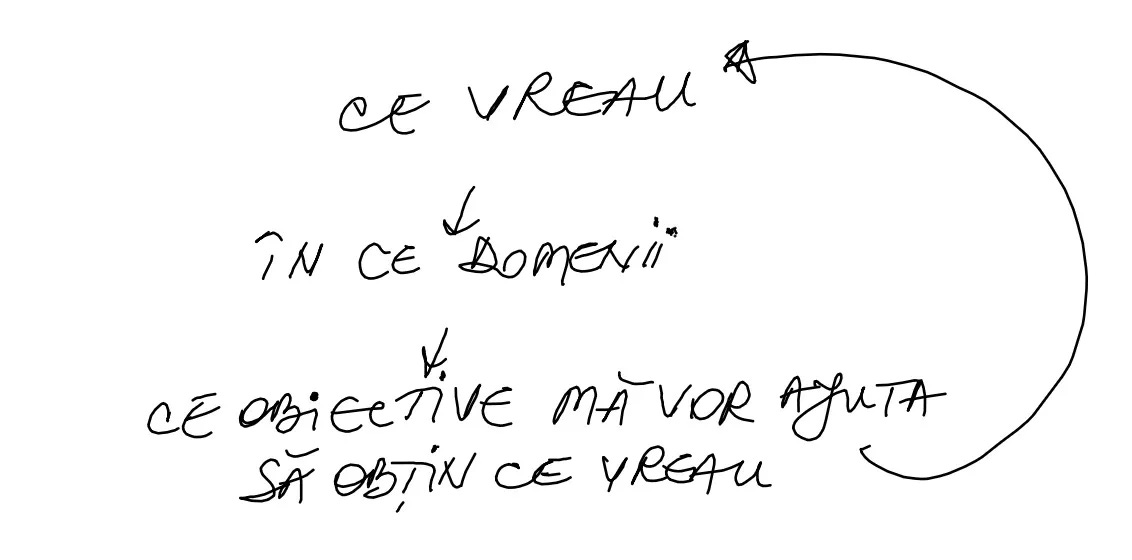 CE VREAU
ÎN CE DOMENII
CE OBIECTIVE MĂ VOR AJUTA
SĂ OBȚIN CE VREAU